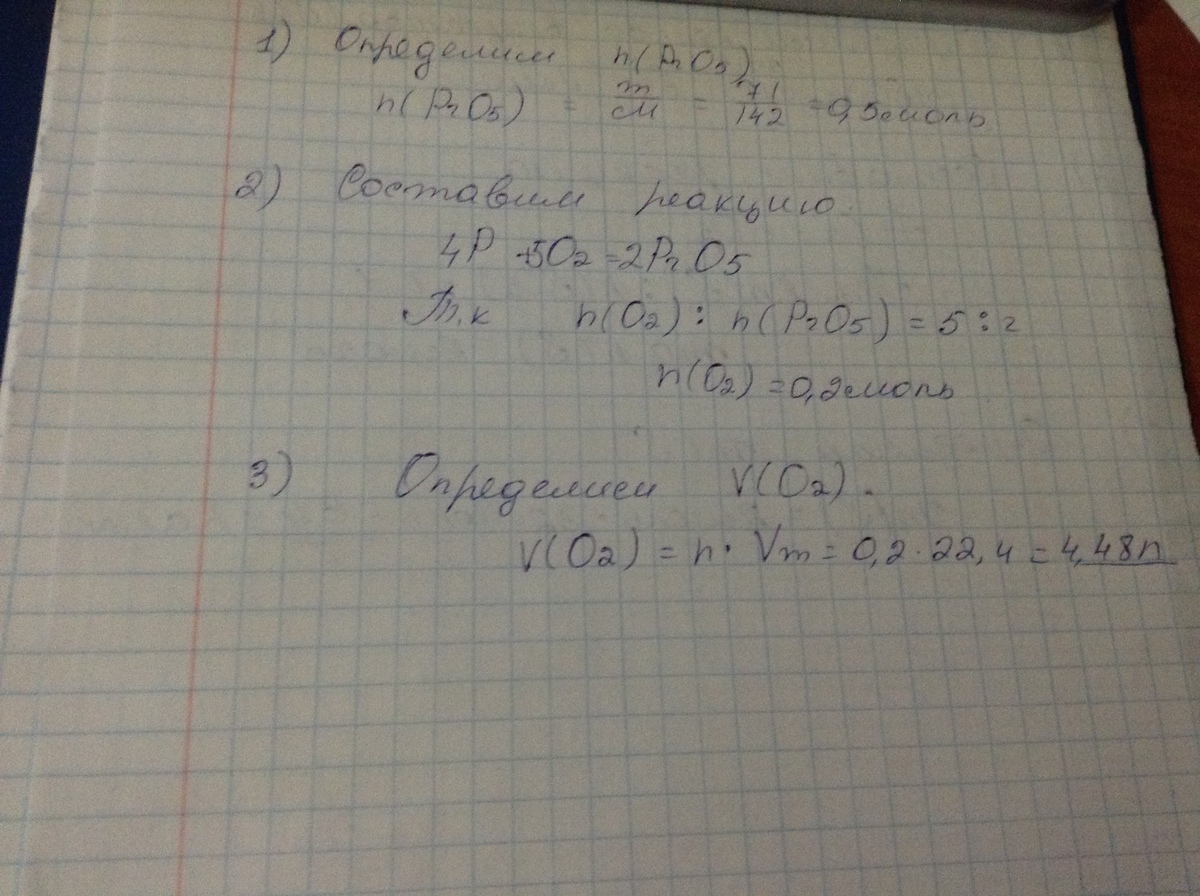 1) Определим n(P₂O₅)
n(P₂O₅) = m/M = 71/142 = 0,5моль
2) Составим реакцию.
4P + 5O₂ = 2P₂O₅
Т.к n(O₂) : n(P₂O₅) = 5 : 2
n(O₂) = 0,2моль
3) Определим V(O₂).
V(O₂) = n · Vm = 0,2 · 22,4 = 4,48л